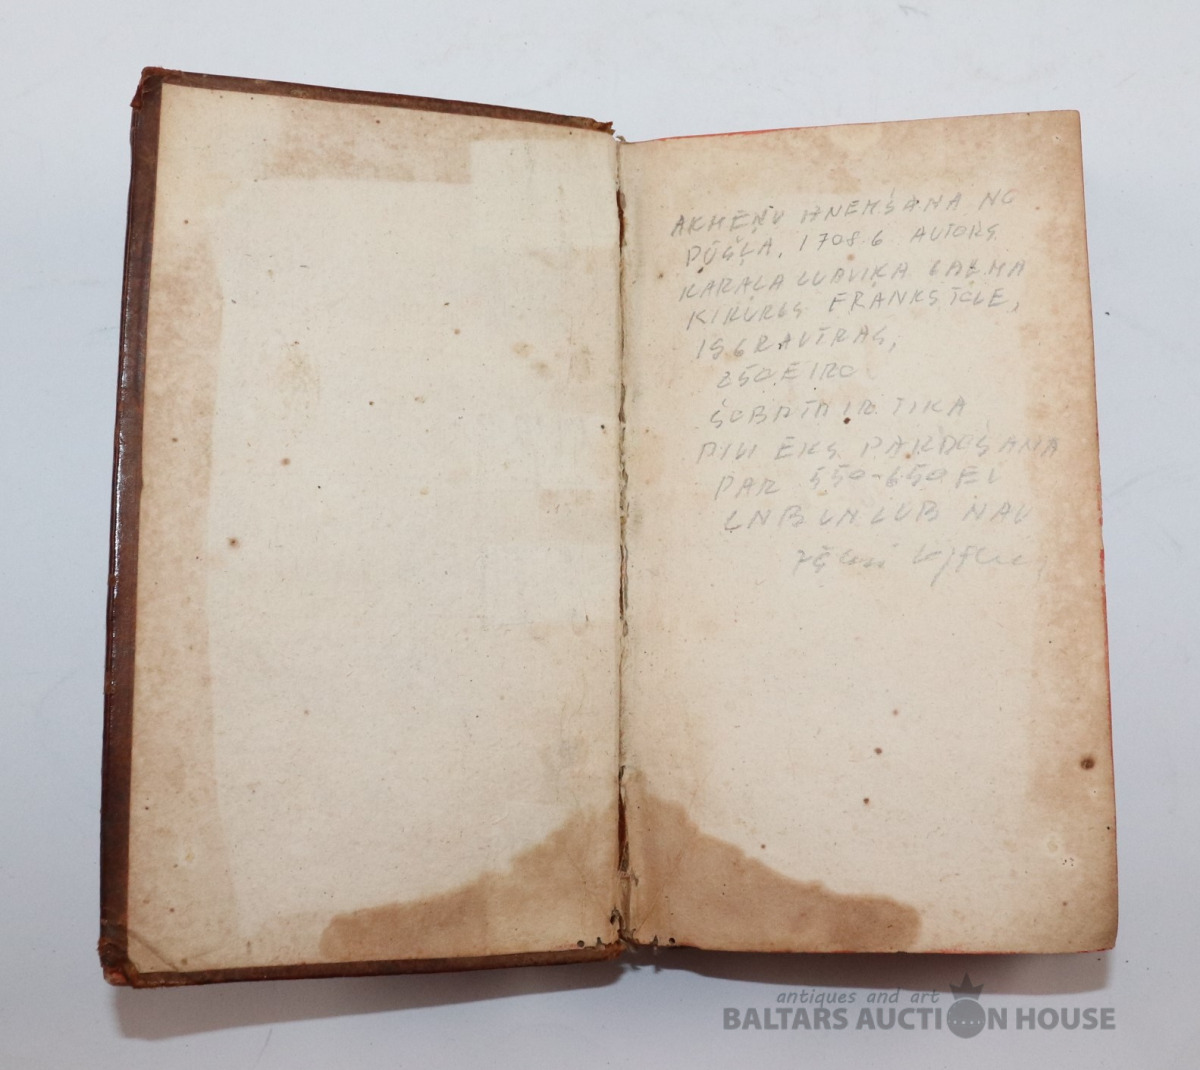 AKMEŅU IZŅEMŠANA NO
PŪŠĻA, 1708.G AUTORS
KARAĻA LUDVIĶA GALMA
ĶIRURGS FRANKS TOLE,
IS GRAVĪRAS,
250 EIRO
ŠOBRTD IR TIKA
DIVI EKS PĀRDOŠANA
PAR 550-650 EI
LNB UN LUB NAV
antiques and art
BALTARS AUCTION HOUSE